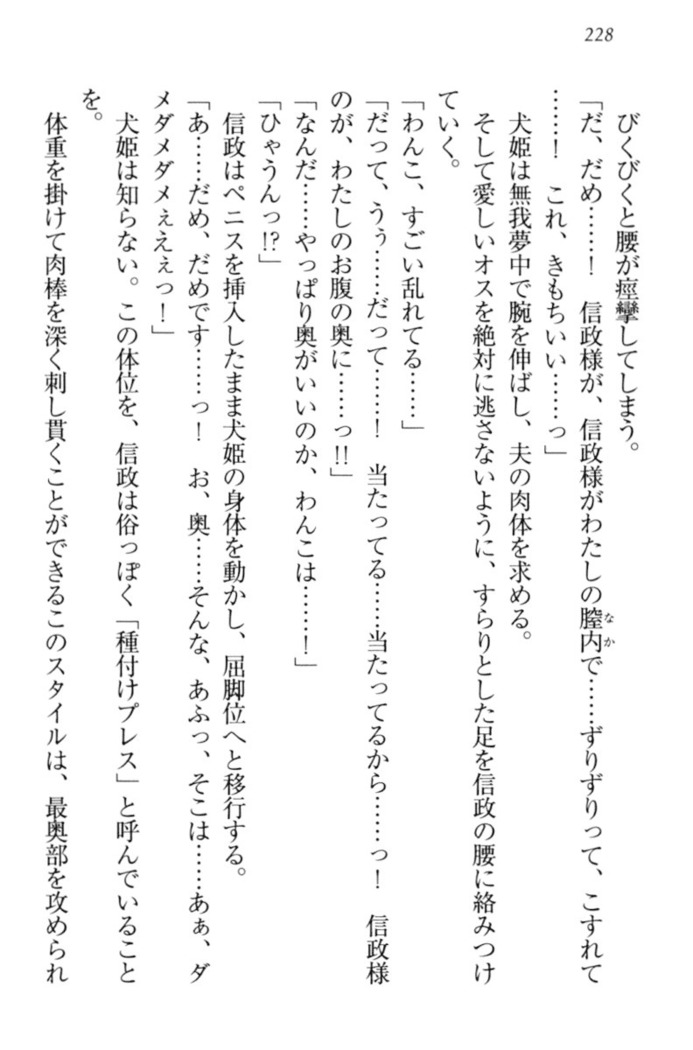 228
びくびくと腰が痙攣してしまう。
「だ、だめ……！　信政様が、信政様がわたしの膣内で……ずりずりって、こすれて
なか
……！　これ、きもちいい……っ」
犬姫は無我夢中で腕を伸ばし、夫の肉体を求める。
そして愛しいオスを絶対に逃さないように、すらりとした足を信政の腰に絡みつけ
ていく。
「わんこ、すごい乱れてる……」
「だって、うぅ……だって……！　当たってる……当たってるから……っ！　信政様
のが、わたしのお腹の奥に……っ!!」
「なんだ……やっぱり奥がいいのか、わんこは……！」
「ひゃうんっ!?」
信政はペニスを挿入したまま犬姫の身体を動かし、屈脚位へと移行する。
「あ……だめ、だめです……っ！　お、奥……そんな、あふっ、そこは……あぁ、ダ
メダメダメぇえぇっ！」
犬姫は知らない。この体位を、信政は俗っぽく「種付けプレス」と呼んでいること
を。
体重を掛けて肉棒を深く刺し貫くことができるこのスタイルは、最奥部を攻められ